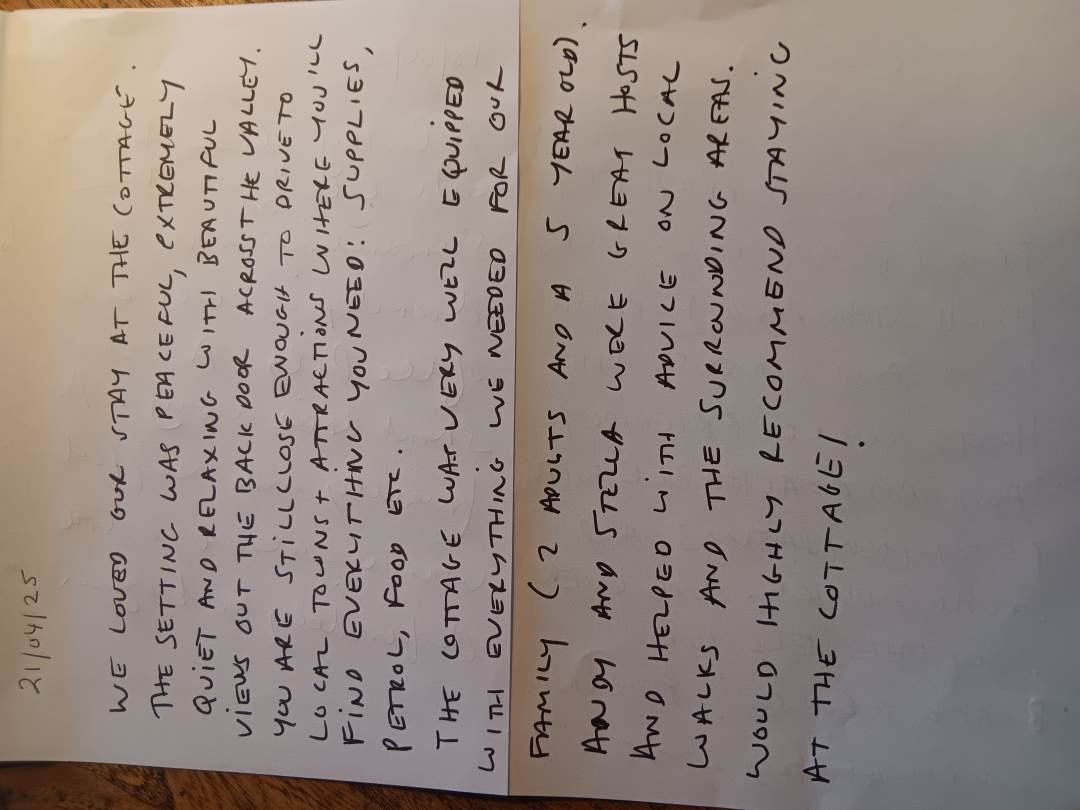 21/04/25
WE LOVED OUR STAY AT THE COTTAGE.
THE SETTING WAS PEACEFUL, EXTREMELY
QUIET AND RELAXING WITH BEAUTIFUL
VIEWS OUT THE BACK DOOR ACROSS THE VALLEY.
YOU ARE STILL CLOSE ENOUGH TO DRIVE TO
LOCAL TOWNS + ATTRACTIONS WHERE YOU'LL
FIND EVERYTHING YOU NEED: SUPPLIES,
PETROL, FOOD ETC.
THE COTTAGE WAS VERY WELL EQUIPPED
WITH EVERYTHING WE NEEDED FOR OUR
FAMILY (2 ADULTS AND A 5 YEAR OLD).
ANDY AND STELLA WERE GREAT HOSTS
AND HELPED WITH ADVICE ON LOCAL
WALKS AND THE SURROUNDING AREAS.
WOULD HIGHLY RECOMMEND STAYING
AT THE COTTAGE!